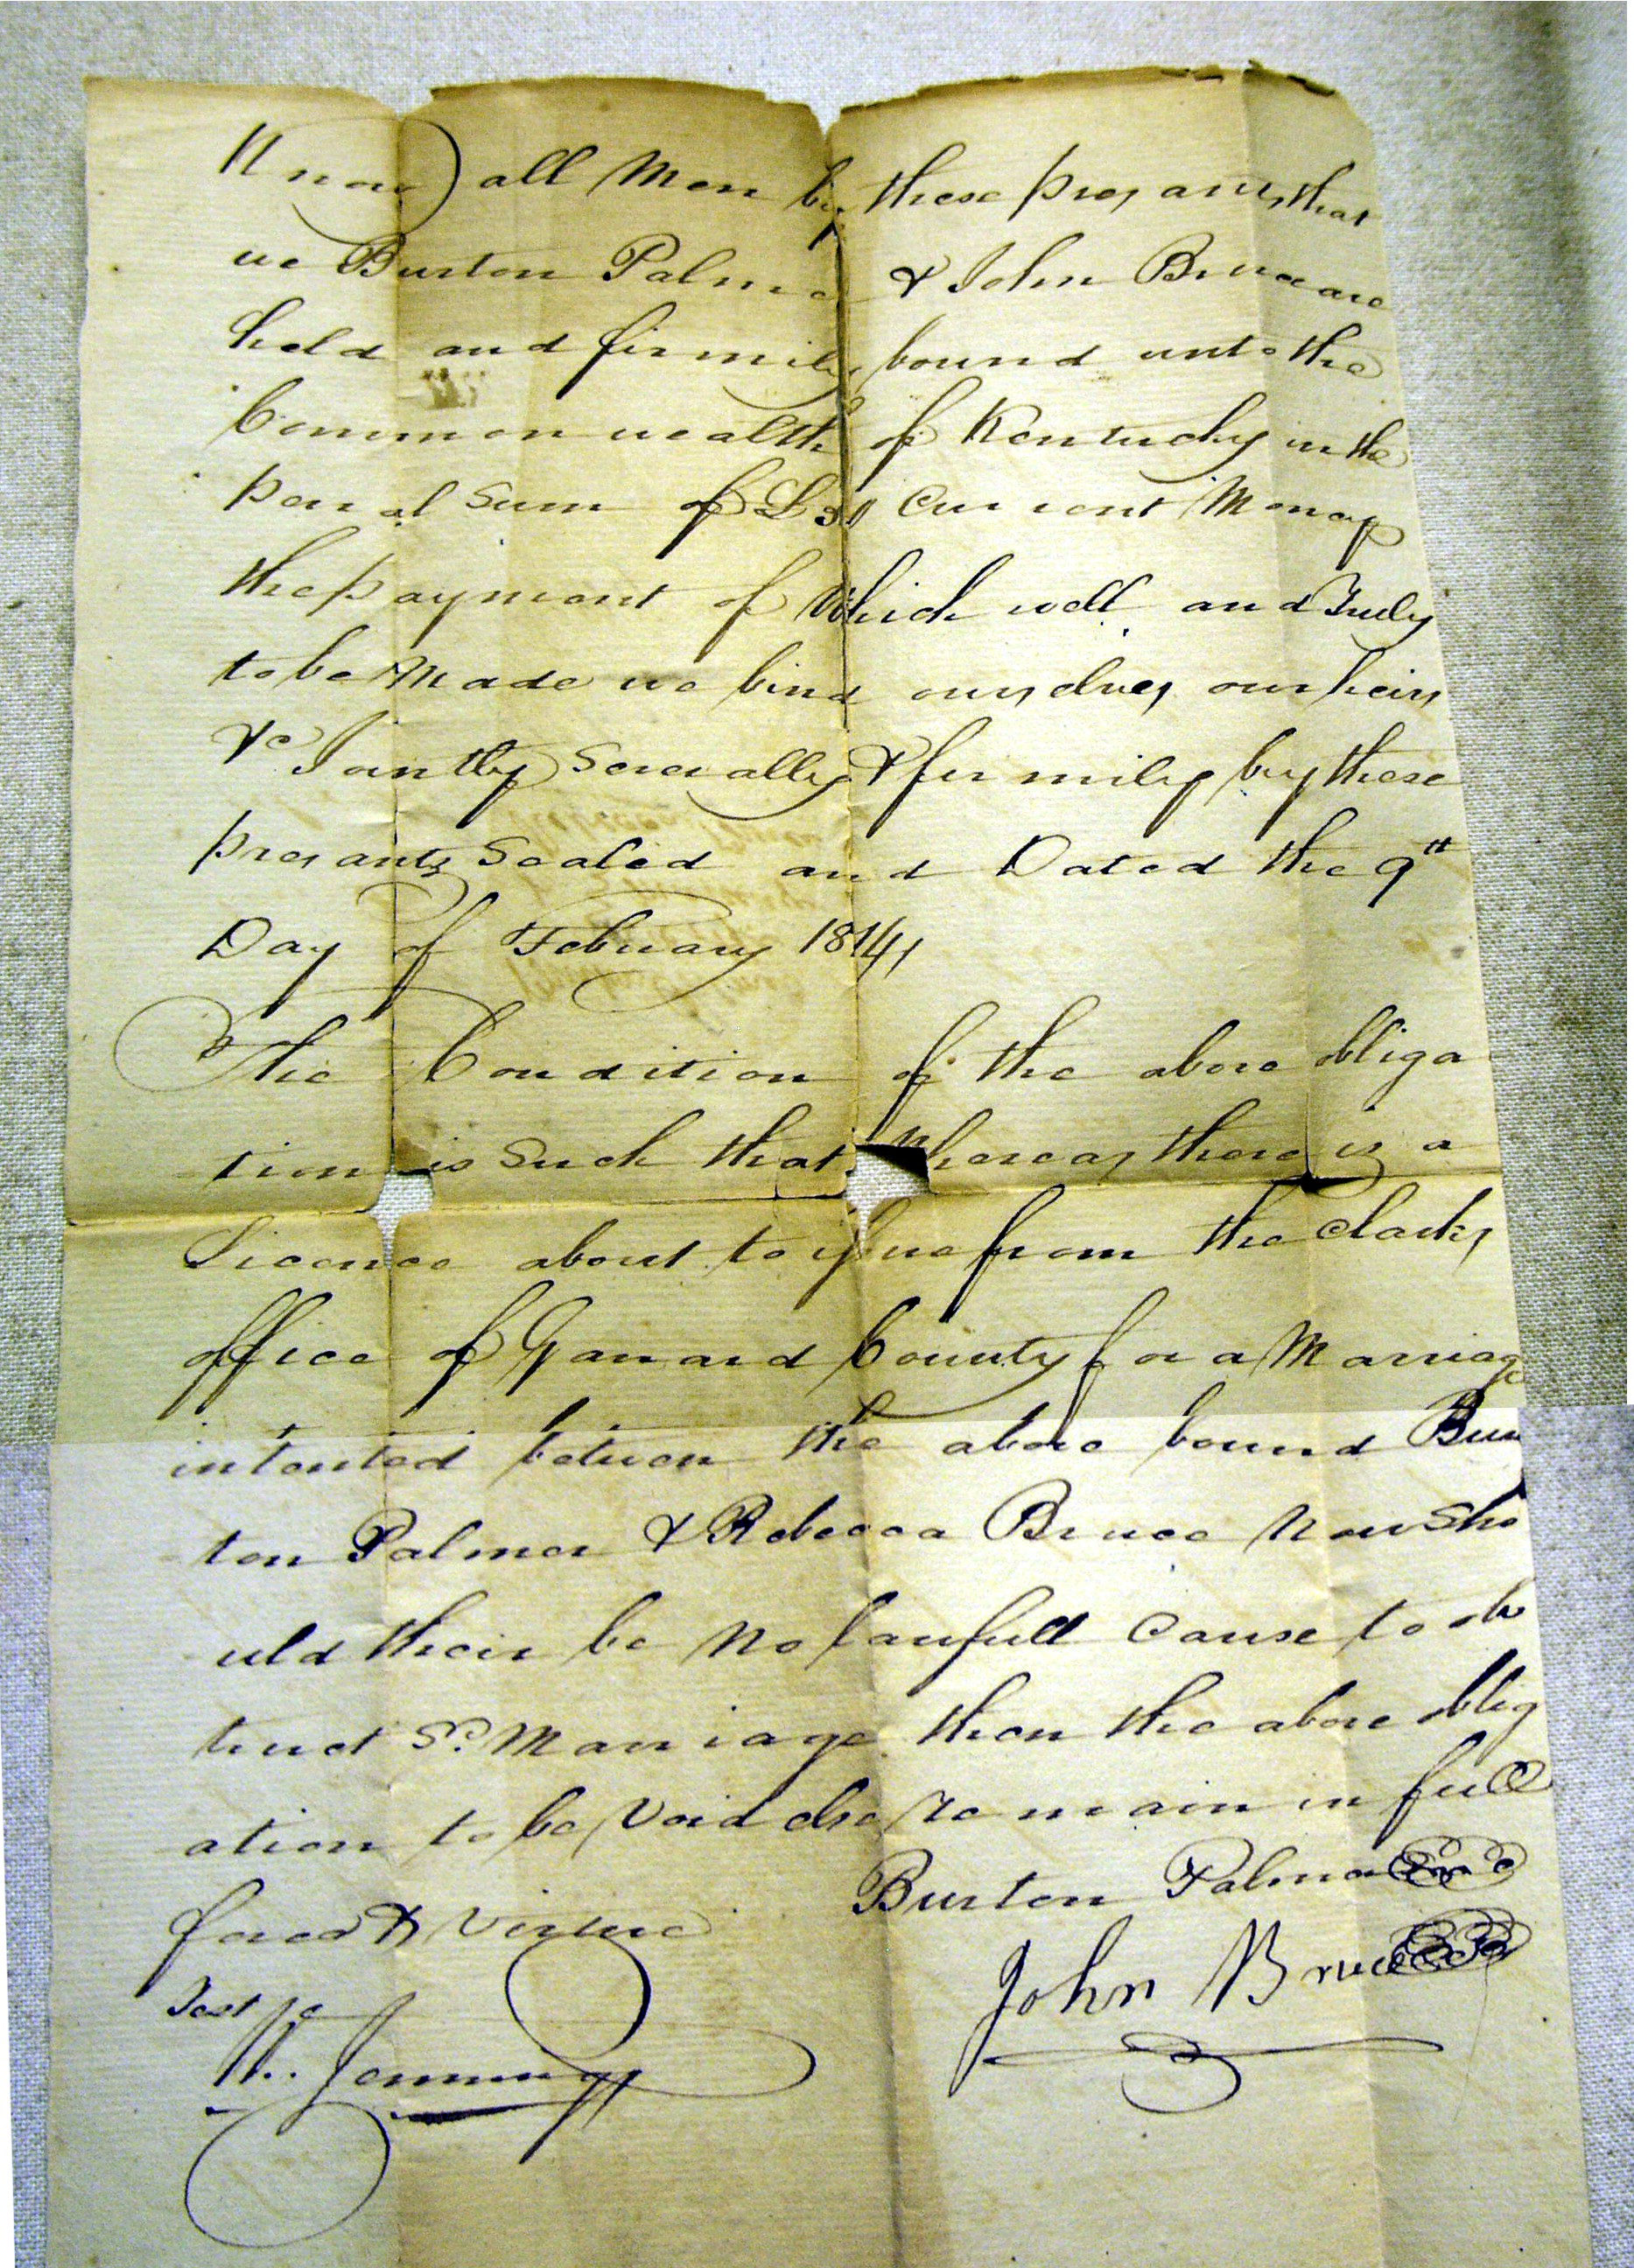 Know all Men by these presants, that
we Burton Palmer & John Bruce are
held and firmily bound unto the
Commonwealth of Kentucky in the
penal Sum of £50 Current Money
the payment of Which well and Truly
to be Made we bind ourselves our heirs
&c Jointly Severally & firmily by these
presants Sealed and Dated the 9th
Day of February 1814
The Condition of the above obliga
tion is Such that Whereas there is a
Licence about to issue from the Clarks
office of Garrard County for a Marriage
intented between the above bound Bur
ton Palmer & Rebecca Bruce Now Sho
uld their be No lawfull Cause to ob
truct Sd. Marriage then the above oblig
ation to be Void else remain in full
force & Virtue
Burton Palmer
John Bruce
Test
Jennings